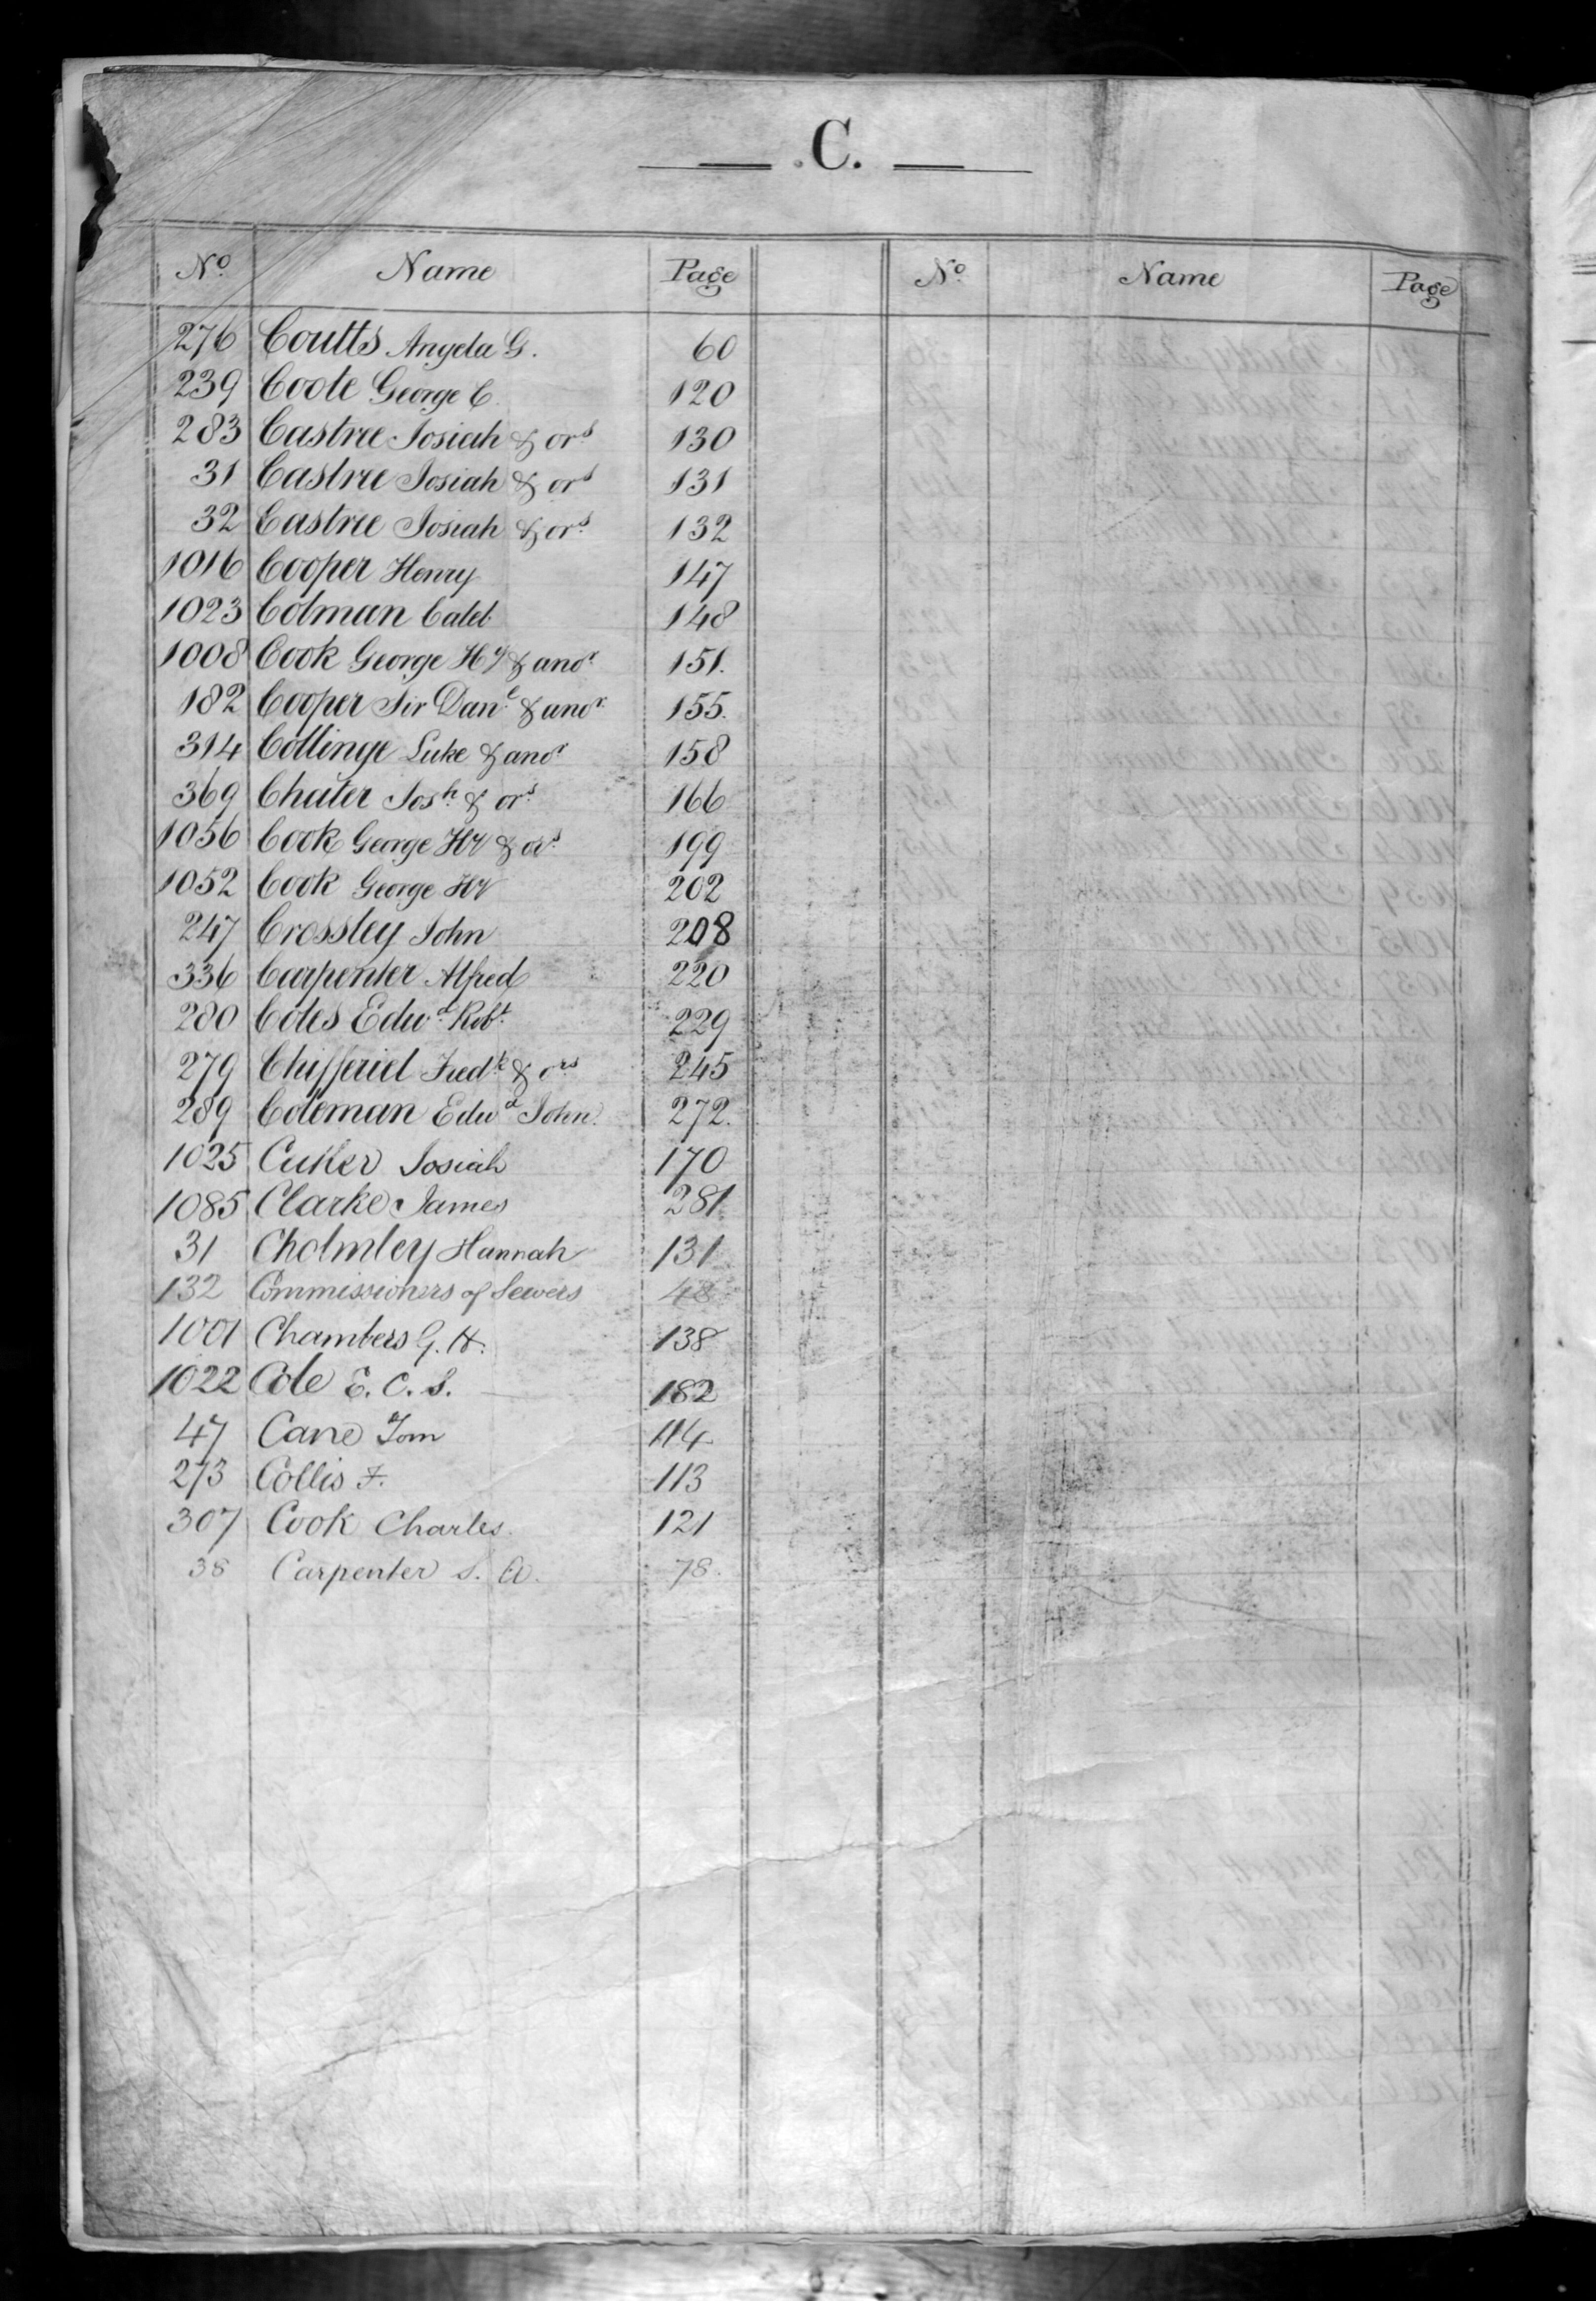 C.
No. Name Page No. Name Page
276 Coutts Angela G. 60
239 Coote George C. 120
283 Castree Josiah & ors 130
31 Castree Josiah & ors 131
32 Castree Josiah & ors 132
1016 Cooper Henry 147
1023 Colman Caleb 148
1008 Cook George Hy & anor 151.
182 Cooper Sir Danl & anor 155.
314 Collinge Luke & anor 158
369 Chater Josh & ors 166
1056 Cook George Hy & ors 199
1052 Cook George Hy 202
247 Crossley John 208
336 Carpenter Alfred 220
280 Coles Edwd Robt 229
279 Chifferiel Fredk & ors 245
289 Coleman Edwd John. 272.
1025 Cutler Josiah 170
1085 Clarke James 281
31 Cholmley Hannah 131
132 Commissioners of Sewers 48
1001 Chambers G. H. 138
1022 Cole E. C. S. 182
47 Cane Tom 114
273 Collis F. 113
307 Cook Charles. 121
38 Carpenter S. A. 78.